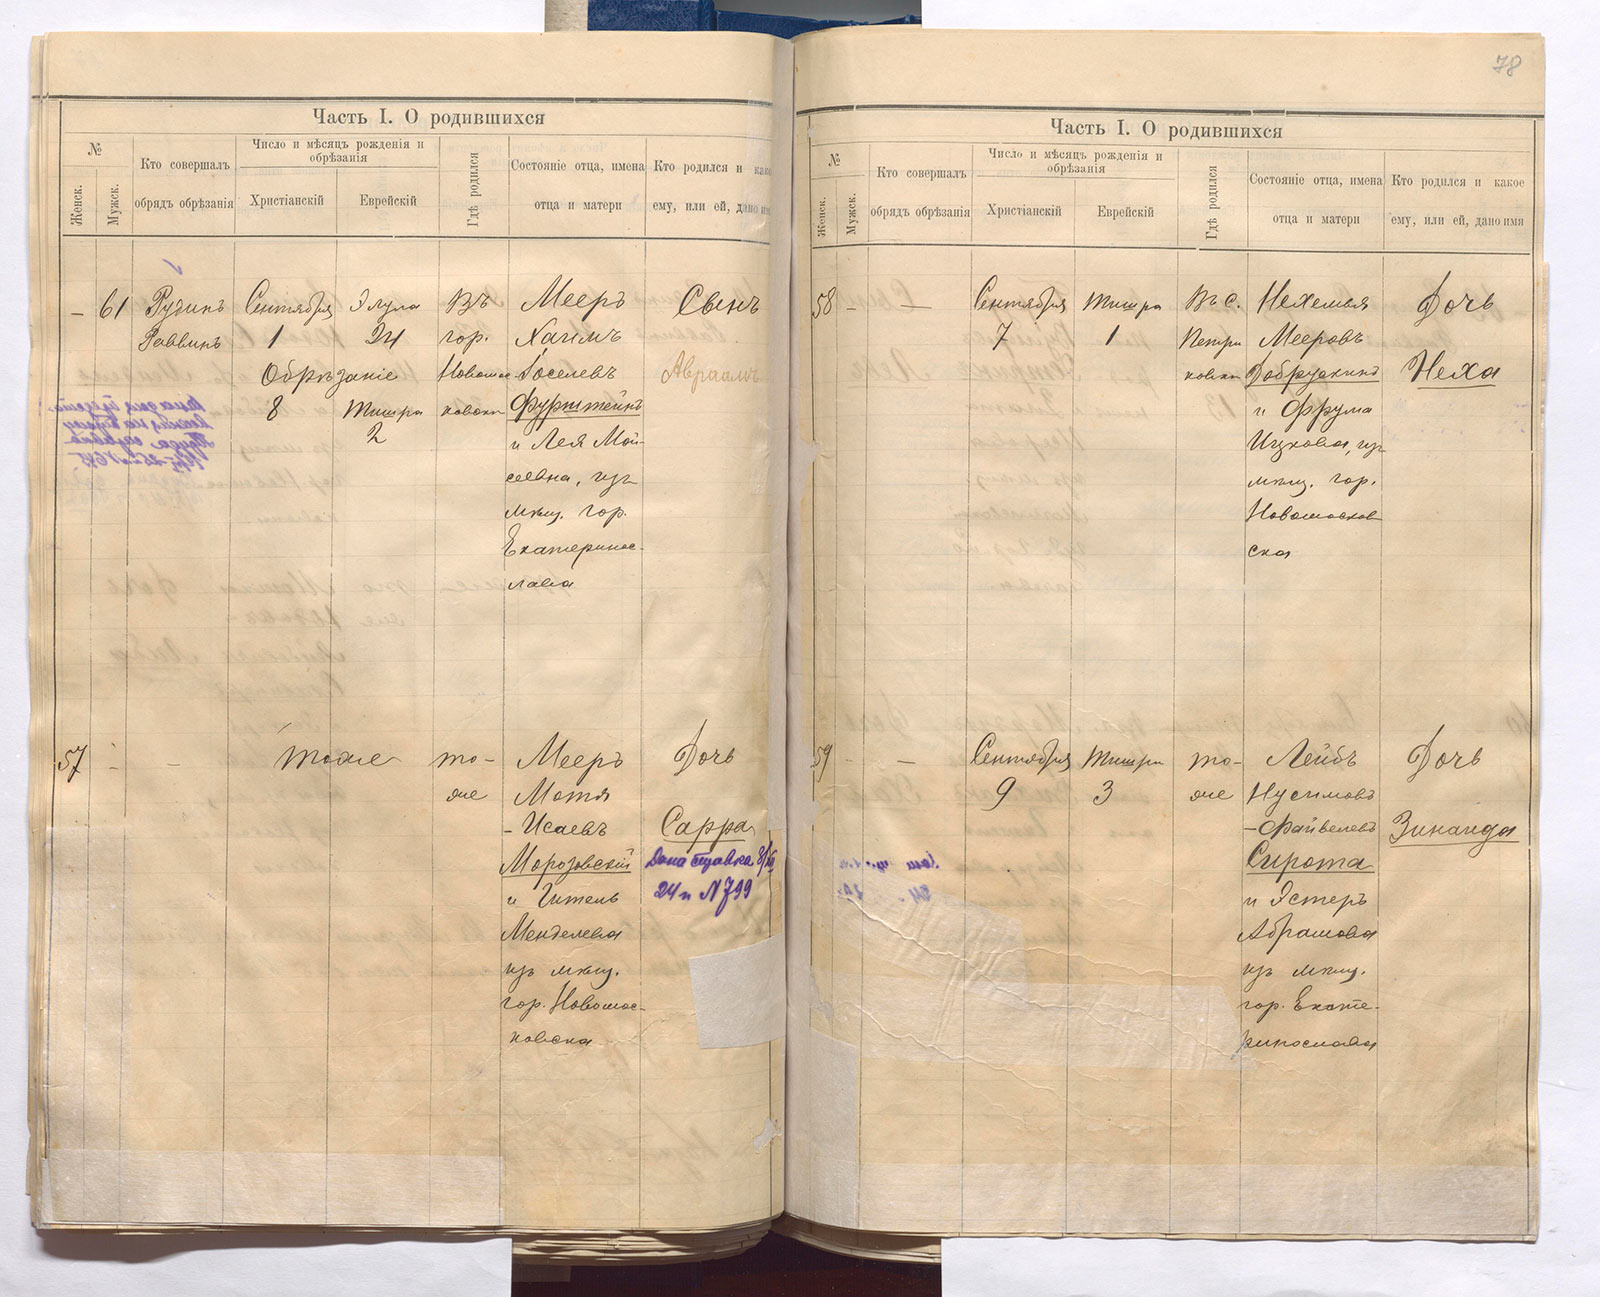 78
Часть I. О родившихся
№
Женск.
Мужск.
Кто совершалъ
обрядъ обрѣзанія
Число и мѣсяцъ рожденія и
обрѣзанія
Христіанскій
Еврейскій
Гдѣ родился
Состояніе отца, имена
отца и матери
Кто родился и како
ему, или ей, дано имя
–
61
Рудинъ
Раввинъ
Сентября
1
Элула
24
Обрѣзаніе
8
Тишра
2
Въ
гор.
Новомос-
ковскѣ
Мееръ
Хаимъ
Іоселевъ
Фурштейнъ
и Лея Мой-
сеевна, изъ
мѣщ. гор.
Екатеринос-
лава
Сынъ
Авраамъ
57
–
–
тоже
то-
же
Мееръ
Мотя
-Исаевъ
Морозовскій
и Гитель
Менделева
изъ мѣщ.
гор. Новомос-
ковска
Дочь
Сарра
Дана справка
24 г. N 799
Часть I. О родившихся
№
Женск.
Мужск.
Кто совершалъ
обрядъ обрѣзанія
Число и мѣсяцъ рожденія и
обрѣзанія
Христіанскій
Еврейскій
Гдѣ родился
Состояніе отца, имена
отца и матери
Кто родился и какое
ему, или ей, дано имя
58
–
–
Сентября
7
Тишра
1
Въ с.
Петри
ковки
Нехемья
Мееровъ
Добрускинъ
и Фрума
Ицкова, изъ
мѣщ. гор.
Новомосков
ска
Дочь
Неха
59
–
–
Сентября
9
Тишри
3
то-
же
Лейбъ
Нусимовъ
-Файвелевъ
Сирота
и Эстеръ
Абрамова
изъ мѣщ.
гор. Екате-
ринослава
Дочь
Зинаида